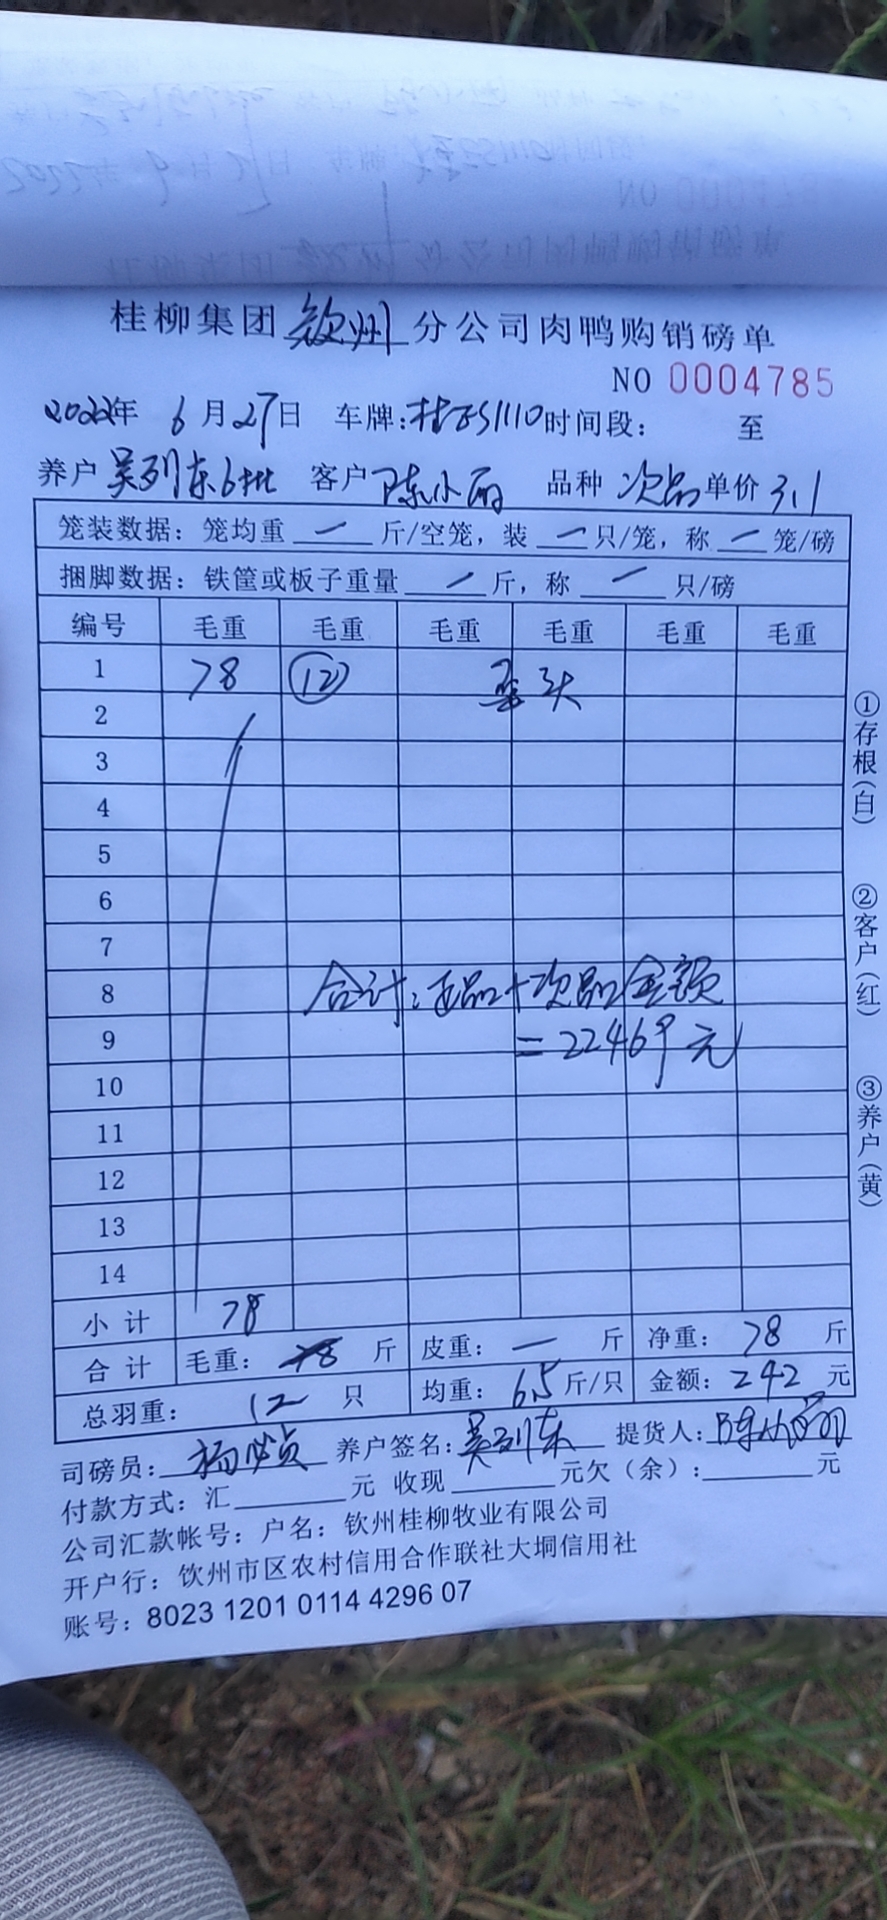 桂柳集团 钦州 分公司肉鸭购销磅单
NO 0004785
2022年 6月27日 车牌:桂ES1110 时间段: 至
养户 吴列东6批 客户 陈小丽 品种 次品 单价 3.1
笼装数据: 笼均重 一 斤/空笼, 装 一 只/笼, 称 一 笼/磅
捆脚数据: 铁筐或板子重量 一 斤, 称 一 只/磅
编号 毛重 毛重 毛重 毛重 毛重 毛重
1 78 ⑫ 歪头
2
3
4
5
6
7
8 合计: 正品+次品金额
9 =22469元
10
11
12
13
14
小计 78
合计 毛重: 78 斤 皮重: 一 斤 净重: 78 斤
总羽重: 12 只 均重: 6.5 斤/只 金额: 242 元
司磅员: 养户签名: 吴列东 提货人: 陈小丽
付款方式: 汇 元 收现 元欠(余): 元
公司汇款帐号: 户名: 钦州桂柳牧业有限公司
开户行: 钦州市区农村信用合作联社大垌信用社
账号: 8023 1201 0114 4296 07
①存根(白)
②客户(红)
③养户(黄)